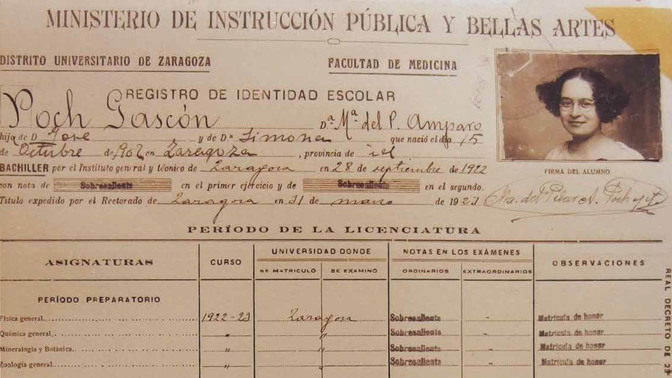 MINISTERIO DE INSTRUCCIÓN PÚBLICA Y BELLAS ARTES
DISTRITO UNIVERSITARIO DE ZARAGOZA
FACULTAD DE MEDICINA
REGISTRO DE IDENTIDAD ESCOLAR
Poch Gascón D.ª M.ª del P. Amparo
hija de D. José y de D.ª Simona que nació el día 15
de Octubre de 1902 en Zaragoza, provincia de id
BACHILLER por el Instituto general y técnico de Zaragoza en 28 de septiembre de 1922
con nota de Sobresaliente en el primer ejercicio y de Sobresaliente en el segundo.
Título expedido por el Rectorado de Zaragoza en 31 de marzo de 1923
FIRMA DEL ALUMNO
PERÍODO DE LA LICENCIATURA
ASIGNATURAS CURSO UNIVERSIDAD DONDE NOTAS EN LOS EXÁMENES OBSERVACIONES
SE MATRICULÓ SE EXAMINÓ ORDINARIOS EXTRAORDINARIOS
PERÍODO PREPARATORIO
Física general 1922-23 Zaragoza Sobresaliente - Matrícula de honor
Química general " " Sobresaliente - Matrícula de honor
Mineralogía y Botánica " " Sobresaliente - Matrícula de honor
Zoología general " " Sobresaliente - Matrícula de honor
REAL DECRETO DE